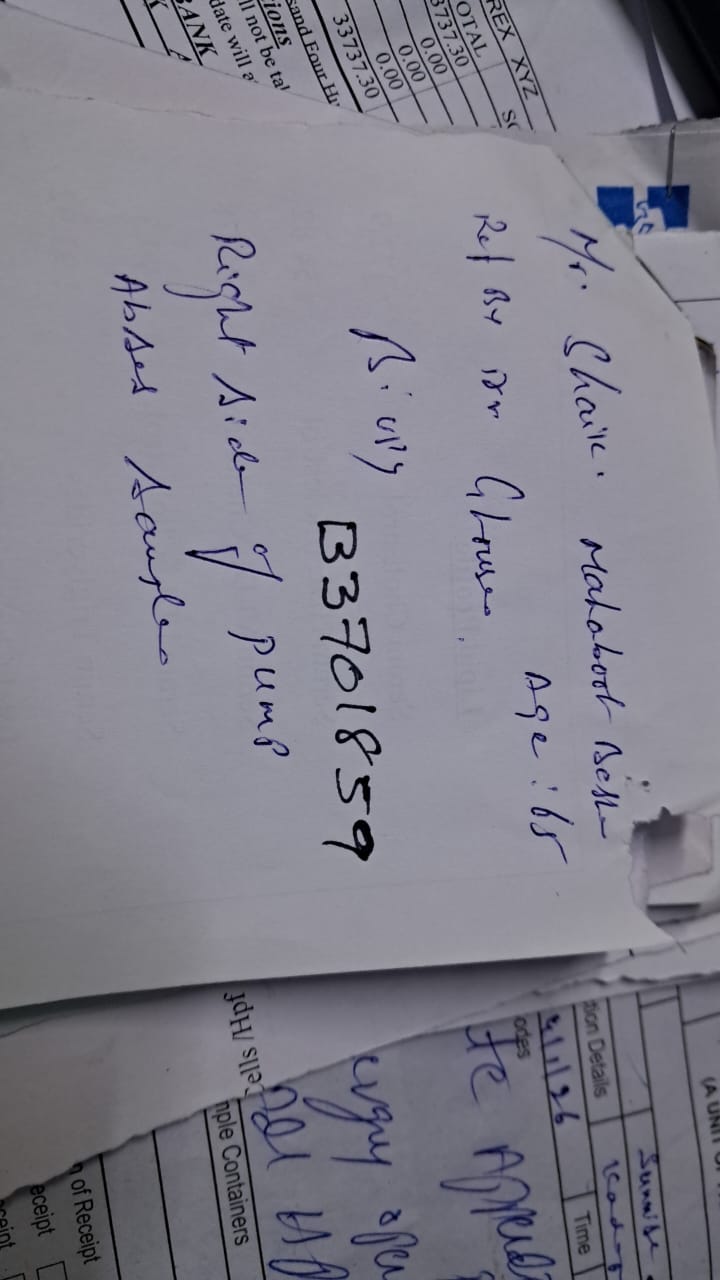 REX XYZ
OTAL
3737.30
0.00
0.00
0.00
33737.30
sand Four Hu
ions
ll not be tal
date will a
BANK
Mr. Shaik. Mahaboob Basha
Age: 65
Ref By Dr Ghouse.
Biopsy B3701859
Right side of pump
Abses Sample
tion Details
Time
odes
Cells /Hpf
mple Containers
n of Receipt
eceipt
ceipt
(A UNIT OF